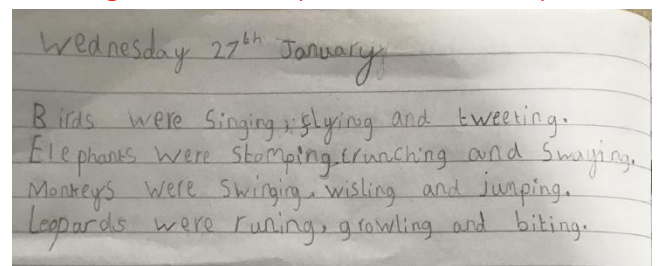 Wednesday 27th January
Birds were singing, flying and tweeting.
Elephants were stomping, crunching and swaying.
Monkeys were swinging, wisling and jumping.
Leopards were runing, growling and biting.